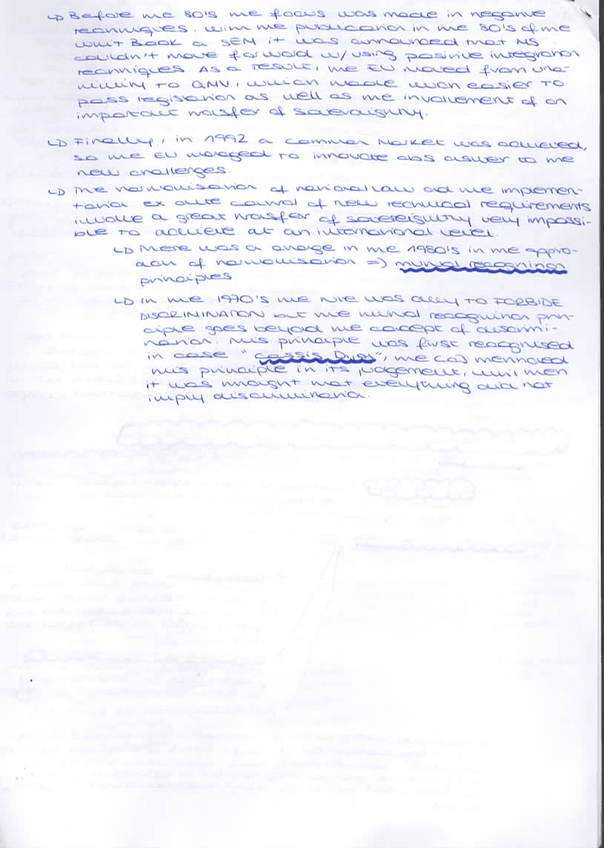 ↳ Before the 80's the focus was made in negative
techniques. With the publication in the 80's of the
Whit Book a SEM it was announced that MS
couldn't move forward w/ using positive integration
techniques. As a result, the EU moved from una-
nimity to QMV, which made even easier to
pass legislation as well as the involvement of an
important transfer of sovereignty.
↳ Finally, in 1992 a Common Market was achieved,
so the EU managed to innovate abs aswer to the
new challenges.
↳ The harmonisation of national law ad the implemen-
tation ex ante control of new technical requirements
involve a great transfer of sovereignty very impossi-
ble to achieve at an international level.
↳ There was a change in the 1980's in the appro-
ach of harmonisation => mutual recognition
principles
↳ In the 1970's the rule was only to FORBIDE
DISCRIMINATION but the mutual recognition prin-
ciple goes beyond the concept of discrimi-
nation. This principle was first recognised
in case "Cassis Dijon", the CoJ mentioned
this principle in its judgement, until then
it was thought that everything did not
imply discrimination.